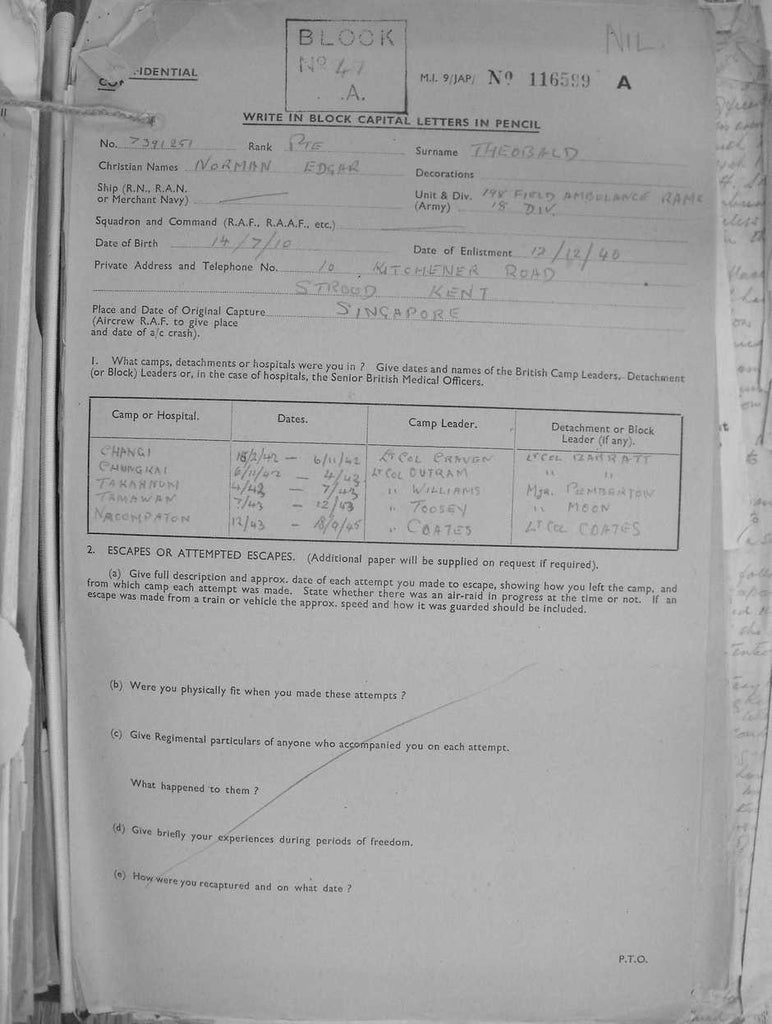 BLOCK
Nº 41
.A.
NIL.
IDENTIAL
M.I. 9/JAP/ Nº 116599 A
WRITE IN BLOCK CAPITAL LETTERS IN PENCIL
No. 7391251 Rank PTE Surname THEOBALD
Christian Names NORMAN EDGAR Decorations
Ship (R.N., R.A.N. or Merchant Navy) Unit & Div. (Army) 198 FIELD AMBULANCE RAMC 18 DIV.
Squadron and Command (R.A.F., R.A.A.F., etc.)
Date of Birth 14/7/10 Date of Enlistment 12/12/40
Private Address and Telephone No. 10 KITCHENER ROAD
STROOD KENT
Place and Date of Original Capture SINGAPORE
(Aircrew R.A.F. to give place
and date of a/c crash).
1. What camps, detachments or hospitals were you in ? Give dates and names of the British Camp Leaders, Detachment
(or Block) Leaders or, in the case of hospitals, the Senior British Medical Officers.
Camp or Hospital. Dates. Camp Leader. Detachment or Block Leader (if any).
CHANGI 15/2/42 – 6/11/42 LT COL CRAVEN LT COL BARRATT
CHUNGKAI 6/11/42 – 4/43 LT COL OUTRAM " "
TAKANNUN 4/43 – 7/43 " WILLIAMS MJR. PEMBERTON
TAMAWAN 7/43 – 12/43 " TOOSEY " MOON
NACOMPATON 12/43 – 18/9/45 " COATES LT COL COATES
2. ESCAPES OR ATTEMPTED ESCAPES. (Additional paper will be supplied on request if required).
(a) Give full description and approx. date of each attempt you made to escape, showing how you left the camp, and
from which camp each attempt was made. State whether there was an air-raid in progress at the time or not. If an
escape was made from a train or vehicle the approx. speed and how it was guarded should be included.
(b) Were you physically fit when you made these attempts ?
(c) Give Regimental particulars of anyone who accompanied you on each attempt.
What happened to them ?
(d) Give briefly your experiences during periods of freedom.
(e) How were you recaptured and on what date ?
P.T.O.